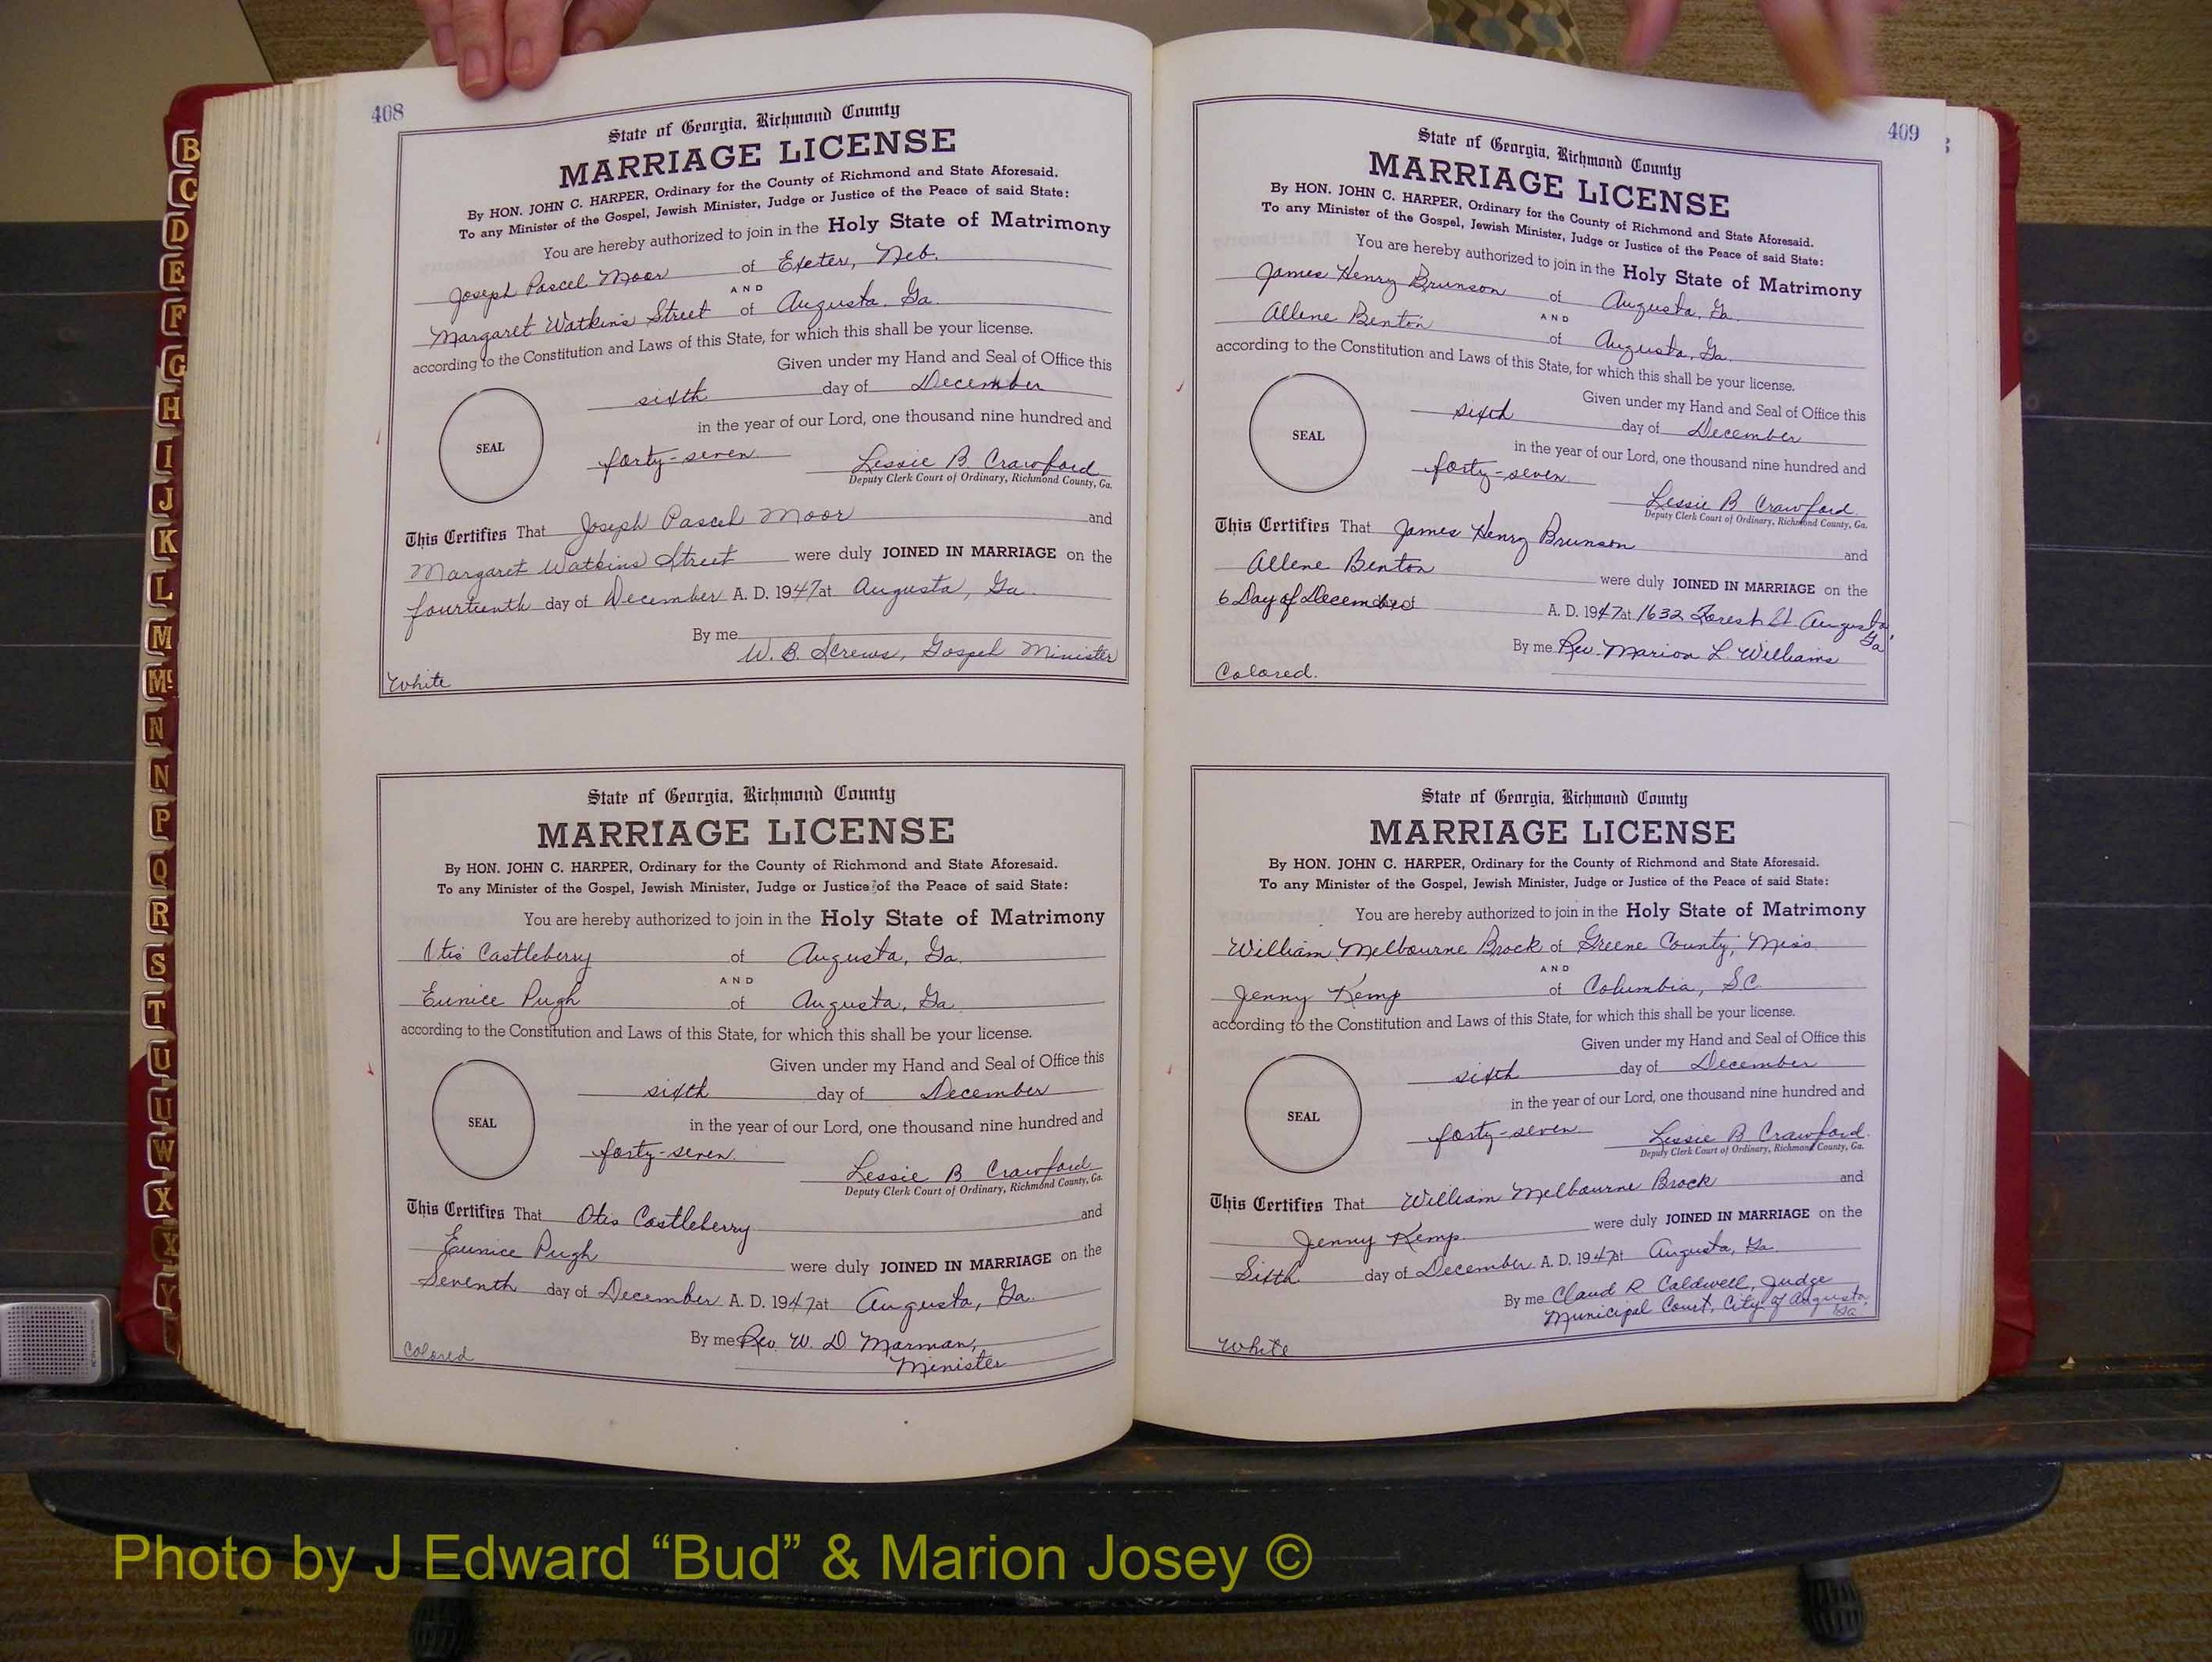 408
State of Georgia, Richmond County
MARRIAGE LICENSE
By HON. JOHN C. HARPER, Ordinary for the County of Richmond and State Aforesaid.
To any Minister of the Gospel, Jewish Minister, Judge or Justice of the Peace of said State:
You are hereby authorized to join in the Holy State of Matrimony
Joseph Pascel Moor of Exeter, Neb.
AND
Margaret Watkins Street of Augusta, Ga.
according to the Constitution and Laws of this State, for which this shall be your license.
Given under my Hand and Seal of Office this
sixth day of December
in the year of our Lord, one thousand nine hundred and
SEAL
forty-seven Lessie B Crawford
Deputy Clerk Court of Ordinary, Richmond County, Ga.
This Certifies That Joseph Pascel Moor and
Margaret Watkins Street were duly JOINED IN MARRIAGE on the
fourteenth day of December A. D. 1947 at Augusta, Ga.
By me
W. B. Screws, Gospel Minister
White
State of Georgia, Richmond County
MARRIAGE LICENSE
By HON. JOHN C. HARPER, Ordinary for the County of Richmond and State Aforesaid.
To any Minister of the Gospel, Jewish Minister, Judge or Justice of the Peace of said State:
You are hereby authorized to join in the Holy State of Matrimony
Otis Castleberry of Augusta, Ga.
AND
Eunice Pugh of Augusta, Ga
according to the Constitution and Laws of this State, for which this shall be your license.
Given under my Hand and Seal of Office this
sixth day of December
in the year of our Lord, one thousand nine hundred and
SEAL
forty-seven. Lessie B Crawford
Deputy Clerk Court of Ordinary, Richmond County, Ga.
This Certifies That Otis Castleberry and
Eunice Pugh were duly JOINED IN MARRIAGE on the
Seventh day of December A. D. 1947 at Augusta, Ga.
By me Rev. W. D. Marman,
Minister
Colored
409
State of Georgia, Richmond County
MARRIAGE LICENSE
By HON. JOHN C. HARPER, Ordinary for the County of Richmond and State Aforesaid.
To any Minister of the Gospel, Jewish Minister, Judge or Justice of the Peace of said State:
You are hereby authorized to join in the Holy State of Matrimony
James Henry Brunson of Augusta, Ga.
AND
Allene Benton of Augusta, Ga.
according to the Constitution and Laws of this State, for which this shall be your license.
Given under my Hand and Seal of Office this
sixth day of December
in the year of our Lord, one thousand nine hundred and
SEAL
forty-seven. Lessie B Crawford
Deputy Clerk Court of Ordinary, Richmond County, Ga.
This Certifies That James Henry Brunson and
Allene Benton were duly JOINED IN MARRIAGE on the
6 Day of December A. D. 1947 at 1632 Forest St. Augusta,
Ga
By me Rev. Marion L. Williams
Colored.
State of Georgia, Richmond County
MARRIAGE LICENSE
By HON. JOHN C. HARPER, Ordinary for the County of Richmond and State Aforesaid.
To any Minister of the Gospel, Jewish Minister, Judge or Justice of the Peace of said State:
You are hereby authorized to join in the Holy State of Matrimony
William Melbourne Brock of Greene County, Miss.
AND
Jenny Kemp of Columbia, S.C.
according to the Constitution and Laws of this State, for which this shall be your license.
Given under my Hand and Seal of Office this
sixth day of December
in the year of our Lord, one thousand nine hundred and
SEAL
forty-seven Lessie B Crawford
Deputy Clerk Court of Ordinary, Richmond County, Ga.
This Certifies That William Melbourne Brock and
Jenny Kemp were duly JOINED IN MARRIAGE on the
Sixth day of December A. D. 1947 at Augusta, Ga
By me Claud R. Caldwell, Judge
Municipal Court, City of Augusta,
Ga
White
B
C
D
E
F
G
H
I
J
K
L
M
Mc
N
N
P
Q
R
S
T
U
U
W
X
X
Y
Photo by J Edward “Bud” & Marion Josey ©